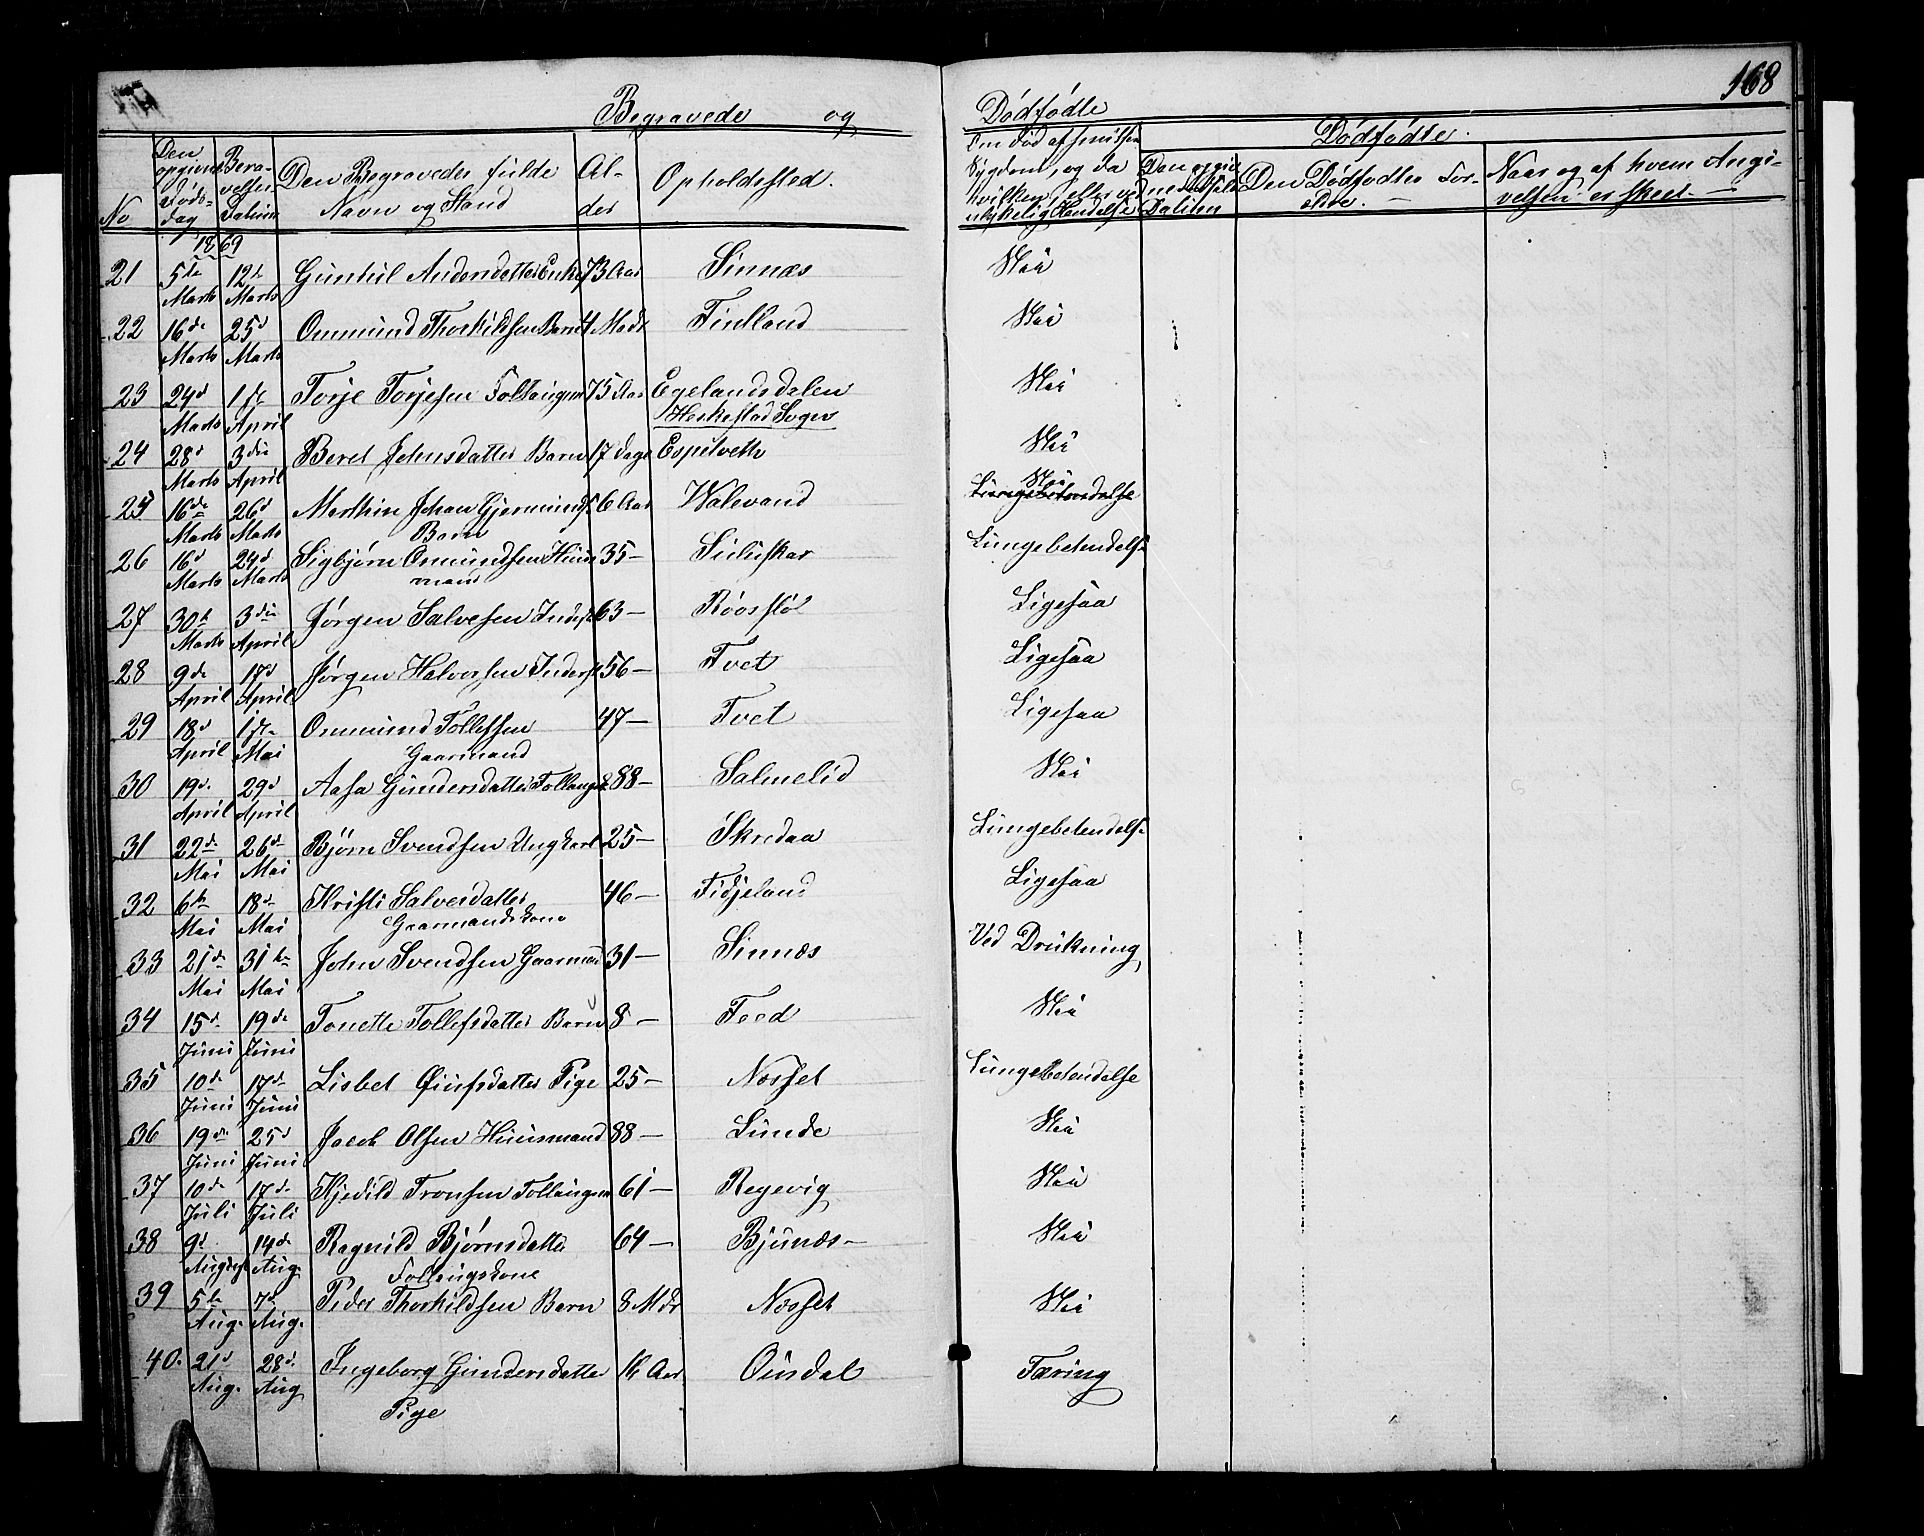 168
Begravede og Dødfødte
No
Den opgivne Døds-dag
Bera-velses Datum
Den Begravedes fulde Navn og Stand
Al-der
Opholdssted.
Om Død af smitsom Sygdom, og da hvilken, eller ved ulykkelig Hændelse
Dødfødte.
Den opgivne Datum
Den Dødfødtes For-ældre. —
Naar og af hvem Angi-velsen er skeet. —
1869
21 5te Marts 12te Marts Gunhil Andersdatter Enke 73 Aar Sinnæs Nei
22 16de Marts 25d Marts Ommund Thorkildsen Barn 4 Mdr Fintland Nei
23 24d Marts 1ste April Torje Torjesen Follaugsm 75 Aar Egelandsdalen Nei
/Heskestad Sogn
24 28d Marts 3die April Beret Johnsdatter Barn 17 dage Espetveth Nei
25 16de Marts 26d Marts Marthin Johan Gjermunds 6 Aar Walevand Nei
Barn
26 16d Marts 24d Marts Sigbjørn Ommundsen Huus 35 — Suluskar Lungebetendelse
mand
27 30te Marts 3die April Jørgen Salvesen Inderst 63 — Roosslø Ligesaa
28 9de April 17d April Jørgen Halvorsen Inderst 56 — Tvet Ligesaa
29 18d April 1ste Mai Ommund Tollefsen 47 — Tvet Ligesaa
Gaarmand
30 19d. April 29d April Aasa Gundersdatter Follaugsk 88 — Salmelid Nei
31 22de Mai 26d Mai Bjørn Svendsen Ungkarl 25 — Skredaa Lungebetendelse
32 6te Mai 18d Mai Kristi Salvesdatter 46 — Fidjeland Ligesaa
Gaarmandskone
33 21de Mai 31te Mai John Svendsen Gaarmand 31 — Sinnæs Ved Drukning
34 15d. Juni 19de Juni Tonette Tollefsdatter Barn 8 — Feed Nei
35 10de Juni 17de Juni Lisbet Øiufsdatter Pige 25 — Nosset Lungebetendelse
36 19de Juni 25d Juni Jacob Olsen Huusmand 88 — Lunde Nei
37 10de Juli 17de Juli Kjedild Tronsen Follaugsm 61 — Regevig Nei
38 9d August 14de Aug. Ragnild Bjørnsdatter 64 — Bjunæs — Nei
Follaugskone
39 5te Aug. 7de Aug. Peder Thorkildsen Barn 8 Mdr Nosset Nei
40. 21d Aug. 28d. Aug Ingeborg Gundersdatter 16 Aar Ousdal Tæring
Pige